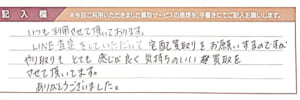 記入欄 ※今回ご利用いただきました買取サービスの感想を、手書きにてご記入お願いします。
いつも利用させて頂いております。
LINE査定をしていただいて宅配買取りをお願いするのですが
やり取りも とても 感じが良く 気持ちのいい 買取を
させて頂いてます。
ありがとうございました。